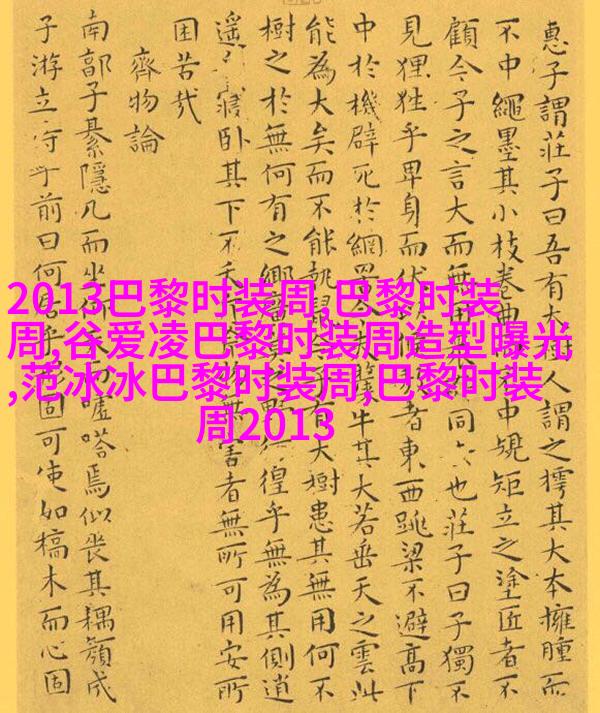 惠子謂莊子曰吾有大人謂之樗其大本擁腫而
不中繩墨其小枝卷曲而不中規矩立之塗匠者不
顧今子之言大而無用同去也莊子曰子獨不
見狸狌乎卑身而伏候敖者東西跳梁不避高下
中於機辟死於網罟今夫斄牛其大若垂天之雲此
能為大矣而不能執鼠今子有大樹患其無用何不
樹之於無何有之鄉廣莫之野徨乎無為其側逍
遙寢卧其下不夭斤物無害者無所可用安所
困苦哉
齊物論
南郭子綦隱几而坐仰天而噓嗒焉似喪其耦顏成
子游立侍乎前曰何居乎形固可使如槁木而心固
2013巴黎时装周,巴黎时装
周,谷爱凌巴黎时装周造型曝光
,范冰冰巴黎时装周,巴黎时装
周2013